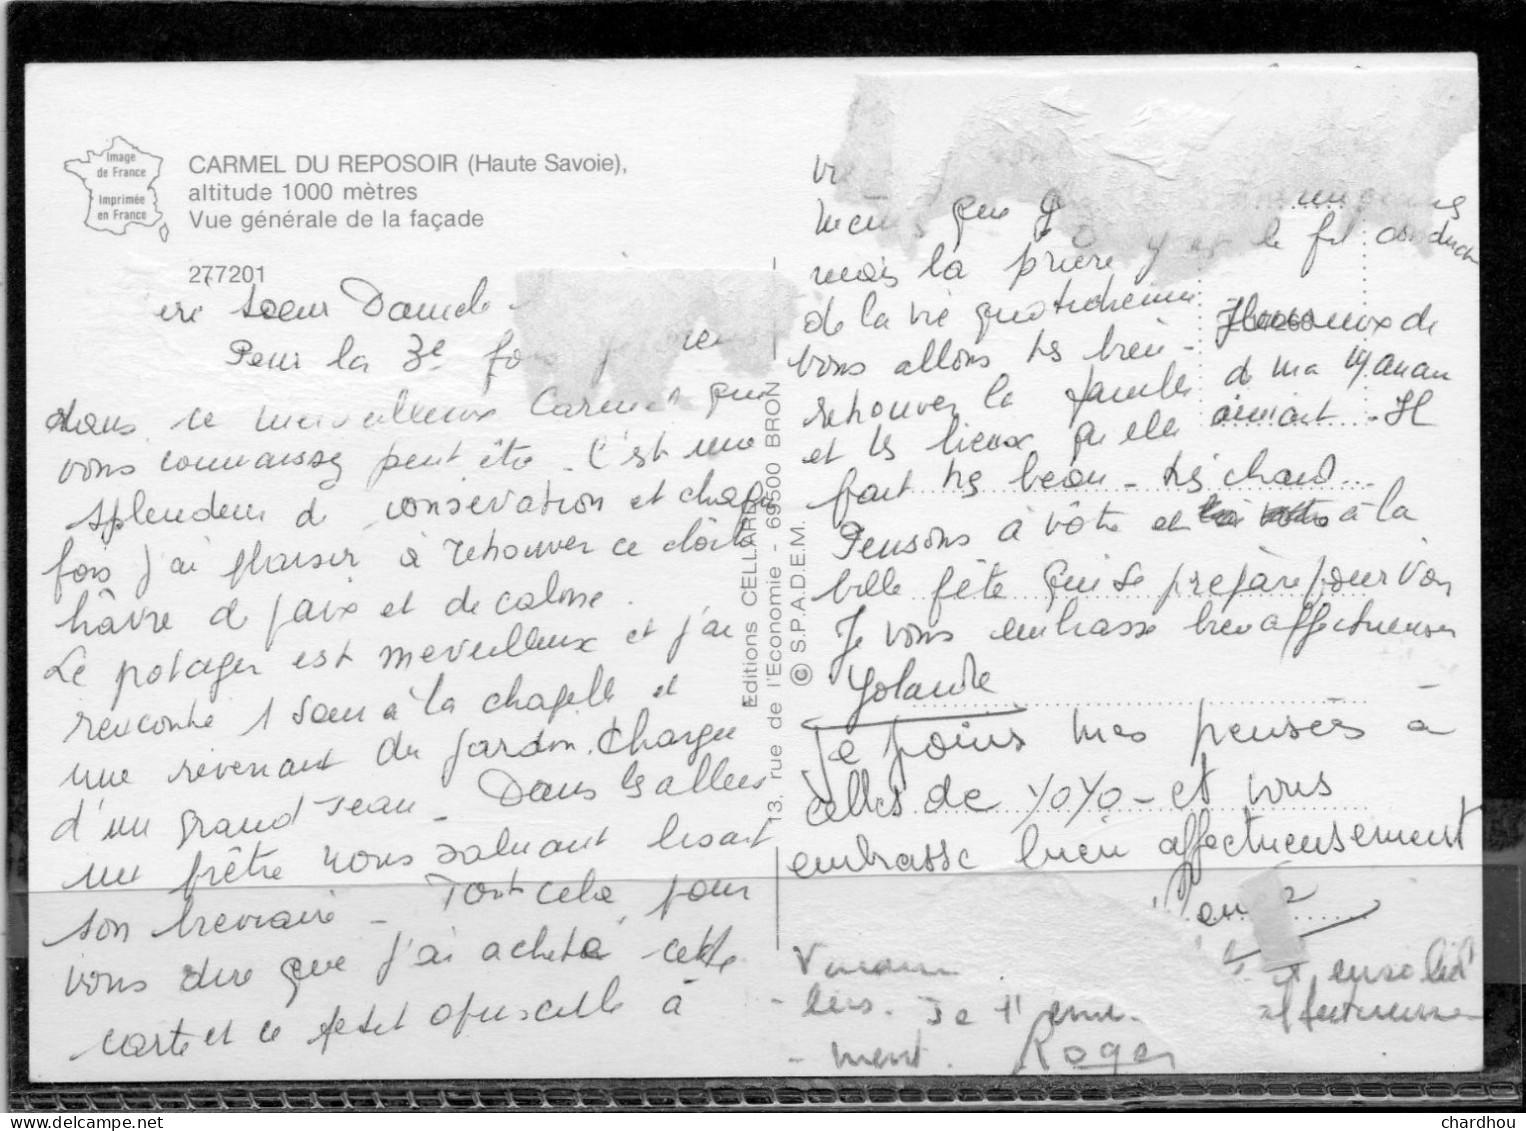 Image
de France
Imprimée
en France
CARMEL DU REPOSOIR (Haute Savoie),
altitude 1000 mètres
Vue générale de la façade
277201
soeur Daniele
Pour la 3e fois
dans ce merveilleux Carmel que
vous connaissez peut être. C'est une
splendeur de conservation et chaque
fois j'ai plaisir à retrouver ce cloître
hâvre de paix et de calme.
Le potager est merveilleux et j'ai
rencontré 1 soeur à la chapelle et
une revenant du jardin. Chargée
d'un grand seau. Dans les allées
un prêtre nous saluant lisait
son breviaire - Tout cela pour
vous dire que j'ai acheté cette
carte et ce petit opuscule à
Editions CELLARD
13, rue de l'Economie - 69500 BRON
© S.P.A.D.E.M.
que
mais la prière y est le fil conducteur
de la vie quotidienne
vous allons très bien - Heureux de
retrouver la famille de ma Maman
et les lieux qu'elle aimait. Il
fait très beau - très chaud...
Pensons à vôtre et à la
belle fête qui se prépare pour vous
Je vous embrasse bien affectueusement
Yolande
Je joins mes pensées à
celles de YoYo - et vous
embrasse bien affectueusement
Je t'em
- ment. Roger
chardhou